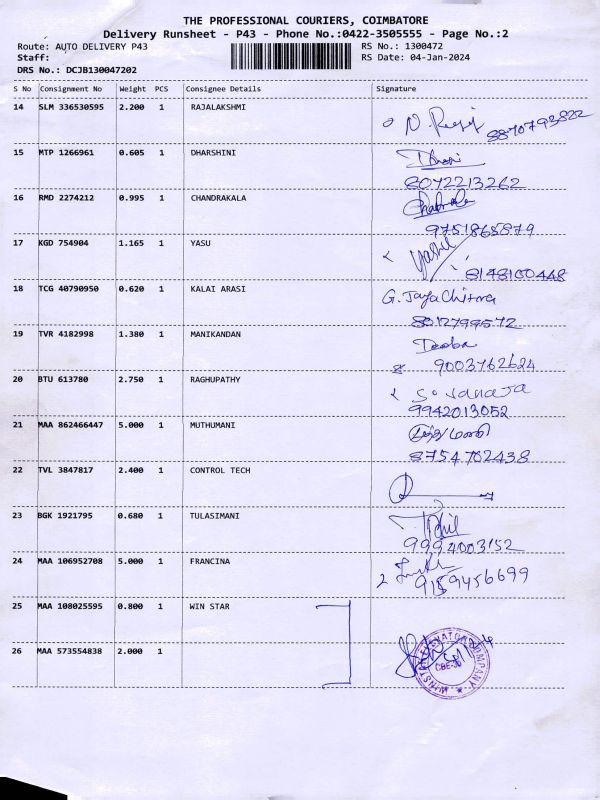 THE PROFESSIONAL COURIERS, COIMBATORE
Delivery Runsheet - P43 - Phone No.:0422-3505555 - Page No.:2
Route: AUTO DELIVERY P43 RS No.: 1300472
Staff: RS Date: 04-Jan-2024
DRS No.: DCJB130047202
S No Consignment No Weight PCS Consignee Details Signature
14 SLM 336530595 2.200 1 RAJALAKSHMI
8870793822
15 MTP 1266961 0.605 1 DHARSHINI
8072213262
16 RMD 2274212 0.995 1 CHANDRAKALA
9751865879
17 KGD 754904 1.165 1 YASU
8148100448
18 TCG 40790950 0.620 1 KALAI ARASI G. Jaya Chitra
8012799572
19 TVR 4182998 1.380 1 MANIKANDAN Deeba
9003762624
20 BTU 613780 2.750 1 RAGHUPATHY
9942013052
21 MAA 862466447 5.000 1 MUTHUMANI முத்து மணி
8754702438
22 TVL 3847817 2.400 1 CONTROL TECH
23 BGK 1921795 0.680 1 TULASIMANI
9994003152
24 MAA 106952708 5.000 1 FRANCINA
9159456699
25 MAA 108025595 0.800 1 WIN STAR
26 MAA 573554838 2.000 1